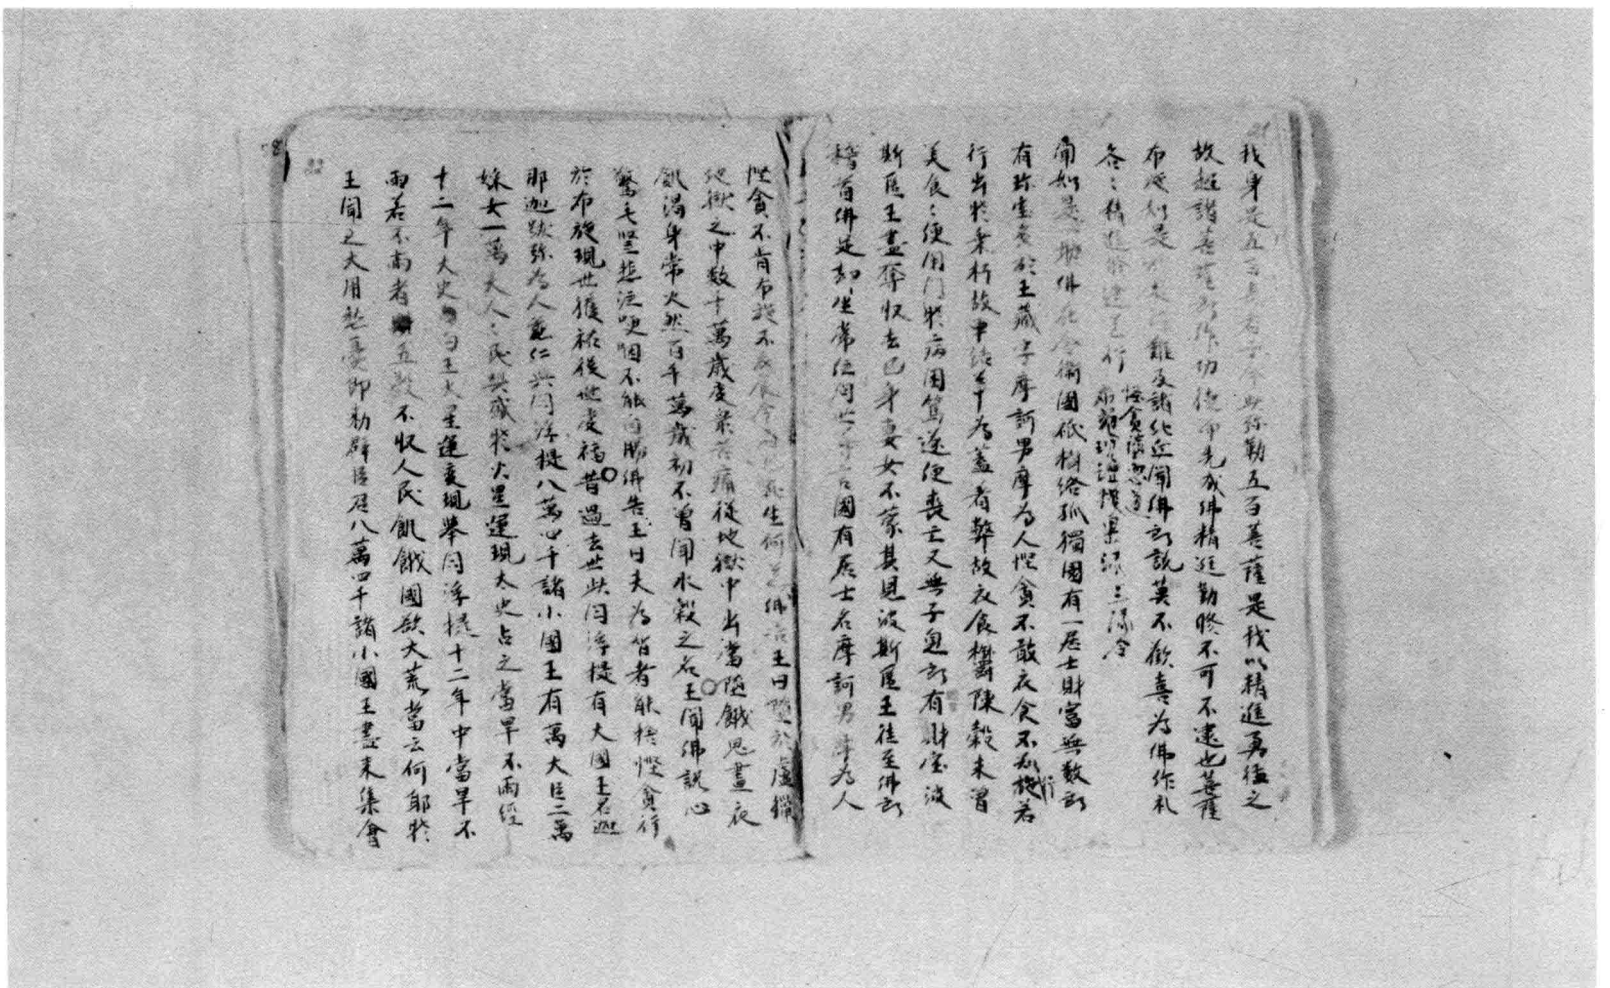 我身是五百長者子今此弥勒五百菩薩是我以精進勇猛之
故超諸菩薩所作功德而先成佛精進勤修不可不逮也菩薩
布施如是 難及諸比丘聞佛所說莫不歡喜為佛作礼
各ミ精進 行
慳貪
緣令
聞如是一時佛在舍衛國祇樹給孤獨園有一居士財富無数所
有珎寳多於王藏字摩訶男摩為人慳貪不敢衣食不知施若
行出於朽故車結草為蓋着弊故衣食陳穀未曽
美食ミ便閇門於病困篤遂便喪亡又無子息所有財寳波
斯匿王盡奪収去己身妻女不蒙其恩波斯匿王往至佛所
稽首佛足却坐常位問世尊言國有居士名摩訶男摩為人
慳貪不肯布施不 衣食今 死生何 佛告王曰墮於盧獵
地獄之中数十萬歳受衆苦痛從地獄中出當墮餓鬼晝夜
飢渴身常火然百千萬歳初不曽聞水穀之名王聞佛說心
驚毛竪悲泣哽咽不能自勝佛告王曰夫為智者能捨慳貪行
於布施現世獲祐後世受福昔過去世此閻浮提有大國王名迦
那迦跋弥為人慈仁典閻浮提八萬四千諸小國王有萬大臣二萬
婇女一萬夫人ミ民熾盛於火星運現太史占之當旱不雨經
十二年太史白王火星運變現舉閻浮提十二年中當旱不
雨若不雨者五穀不収人民飢餓國欲大荒當云何耶於
王聞之大用愁憂即勅群臣召八萬四千諸小國王盡来集會